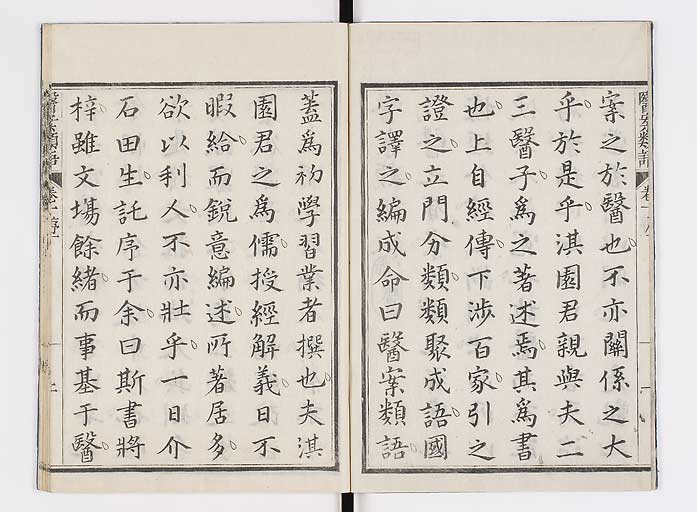 案之於醫也不亦關係之大
乎於是乎淇園君親與夫二
三醫子為之著述焉其為書
也上自經傳下渉百家引之
證之立門分類類聚成語國
字譯之編成命曰醫案類語
蓋為初學習業者撰也夫淇
園君之為儒授經解義日不
暇給而銳意編述所著居多
欲以利人不亦壯乎一日介
石田生託序于余曰斯書將
梓雖文場餘緒而事基于醫